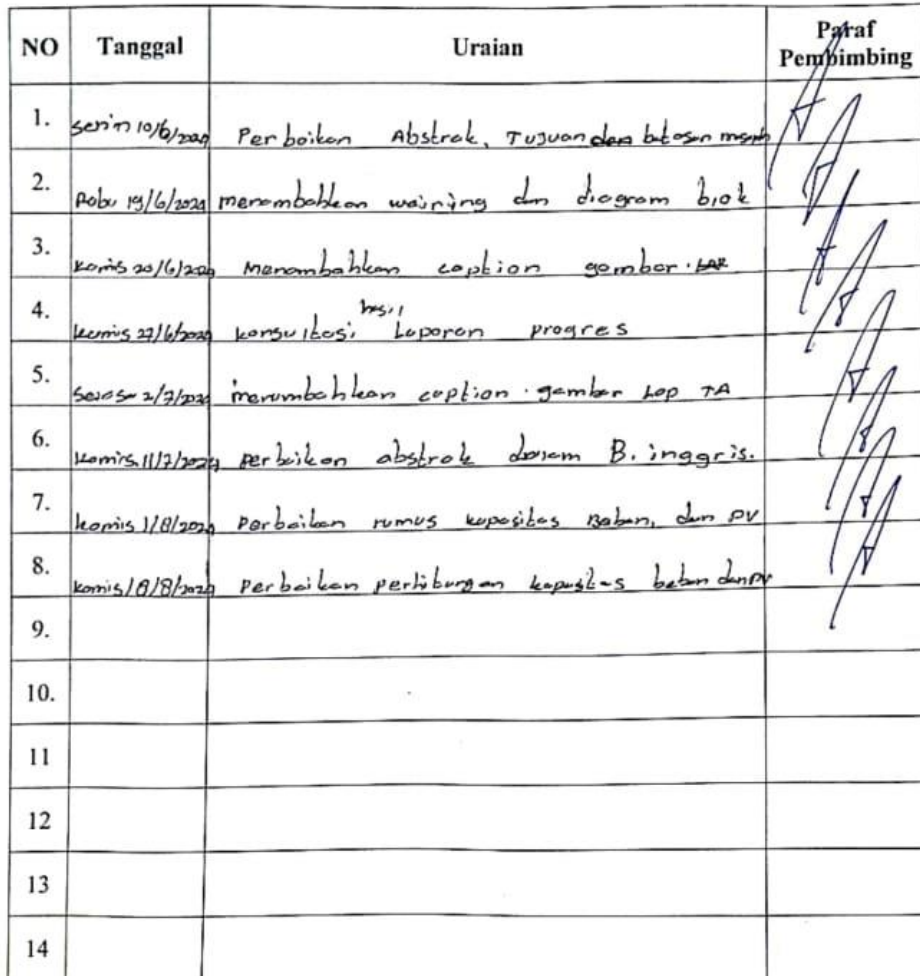 NO Tanggal Uraian Paraf Pembimbing
1. Senin 10/6/2024 Perbaikan Abstrak, Tujuan dan batasan masalah
2. Rabu 19/6/2024 menambahkan wairing dan diagram blok
3. Kamis 20/6/2024 Menambahkan caption gambar.
4. Kamis 27/6/2024 konsultasi hasil Laporan progres
5. Selasa 2/7/2024 menambahkan caption gambar Lap TA
6. Kamis 11/7/2024 perbaikan abstrak dalam B. inggris.
7. kamis 1/8/2024 Perbaikan rumus kapasitas Beban, dan PV
8. kamis/8/8/2024 Perbaikan perhitungan kapasitas beban dan PV
9.
10.
11
12
13
14